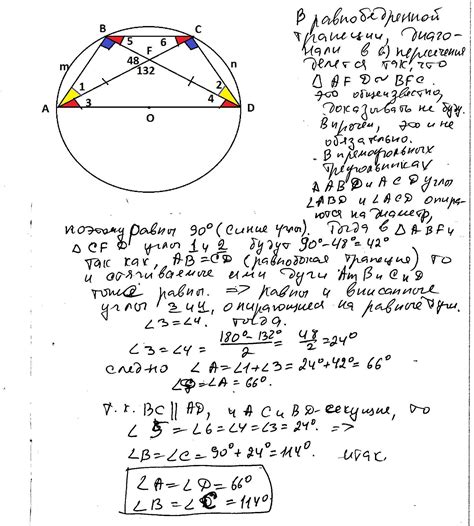 B
C
5
6
F
m
n
48
132
1
2
3
4
A
D
O
В равнобедренной
трапеции, диаго-
нали в (.) пересечения
делятся так, что
△ AFD ∾ BFC.
это общеизвестно,
доказывать не буду.
Впрочем, это и не
обязательно.
В прямоугольных
треугольниках
△ ABD и ACD углы
∠ABD и ∠ACD опира-
ются на диаметр,
поэтому равны 90° (синие углы). Тогда в △ ABF и
△ CFD углы 1 и 2 будут 90°-48°=42°
так как, AB=CD (равнобокая трапеция) то
и стягиваемые ими дуги AmB и CnD
тоже равны. => равны и вписанные
углы 3 и 4, опирающиеся на равные дуги.
∠3=∠4. Тогда.
∠3=∠4= 180°-132°/2 = 48/2 = 24°
следно ∠A=∠1+∠3=24°+42°=66°
∠D=∠A=66°.
т.к. BC || AD, и AC и BD-секущие, то
∠5=∠6=∠4=∠3=24°. =>
∠B=∠C=90°+24°=114°. итак
∠A=∠D=66°
∠B=∠C=114°